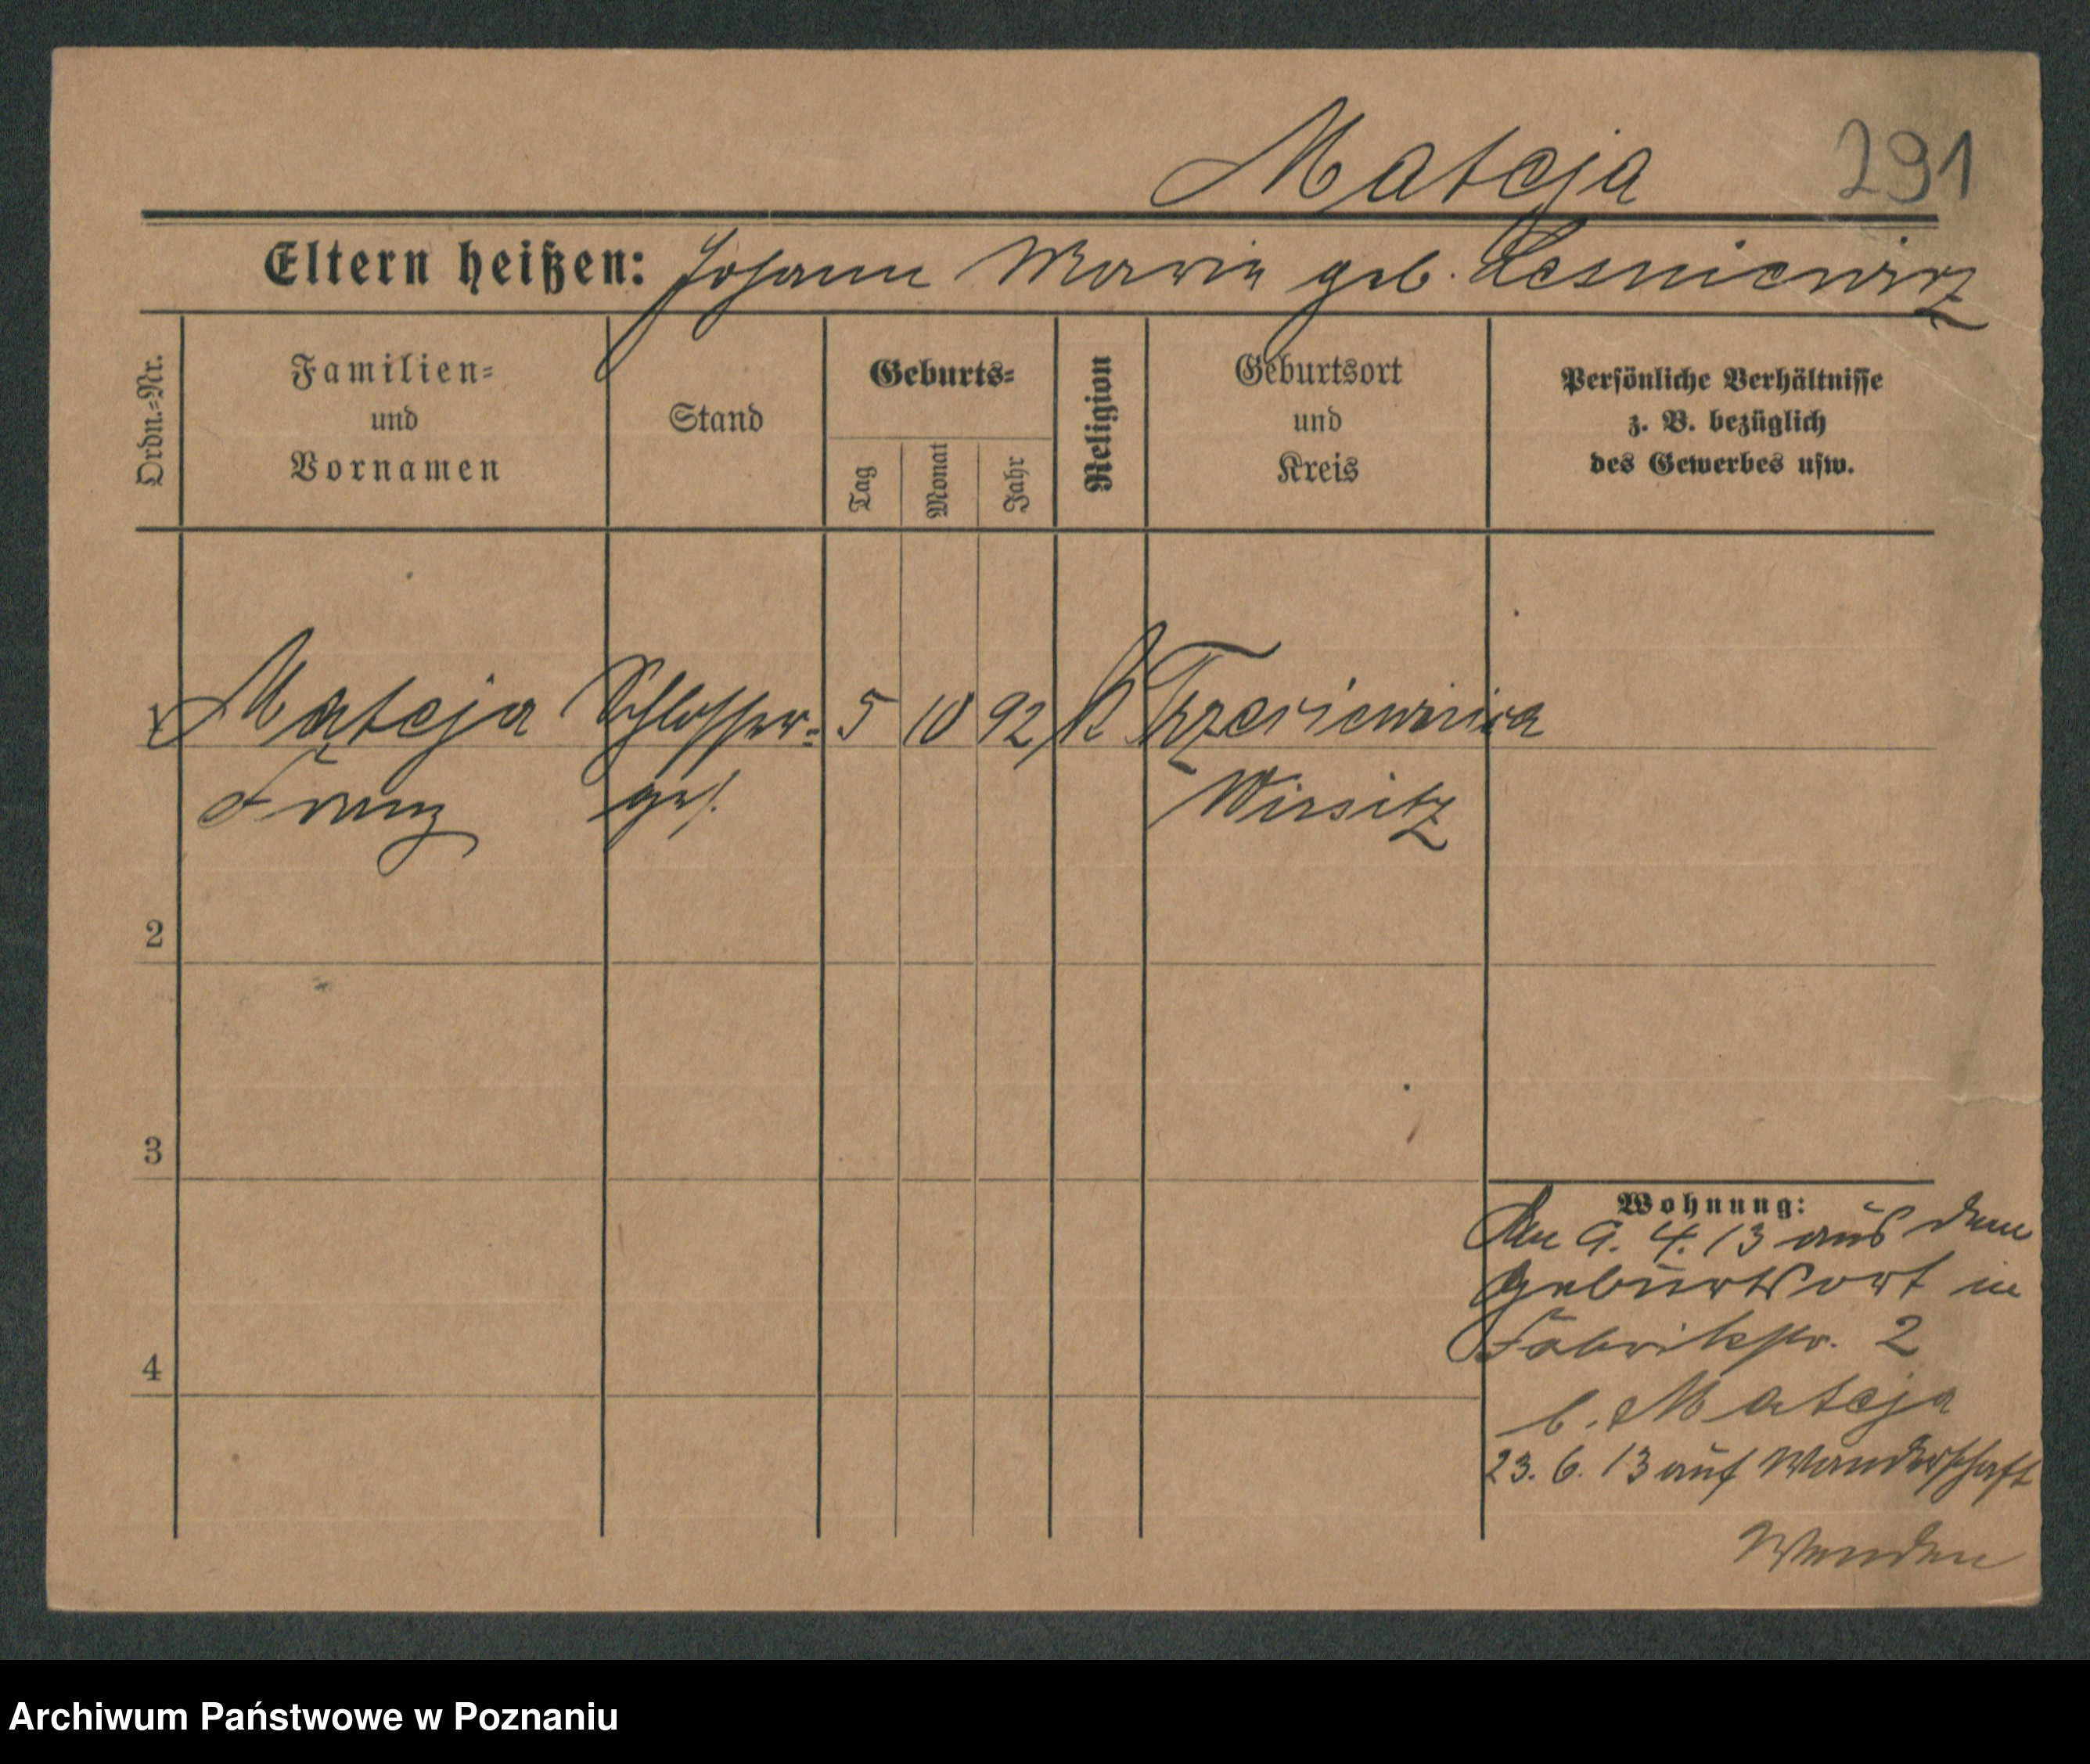 Mateja 291
Eltern heißen: Johann Maria geb. Lesniewicz
Ordn.=Nr.
Familien=
und
Vornamen
Stand
Geburts=
Tag
Monat
Jahr
Religion
Geburtsort
und
Kreis
Persönliche Verhältnisse
z. B. bezüglich
des Gewerbes usw.
1 Mateja Schlosser= 5 10 92 K
Franz ges. Wirsitz
2
3
4
Wohnung:
An 9. 4. 13 aus dem
Geburtsort in
Fabrikstr. 2
b. Mateja
23. 6. 13 auf Wanderschaft
Wenden
Archiwum Państwowe w Poznaniu